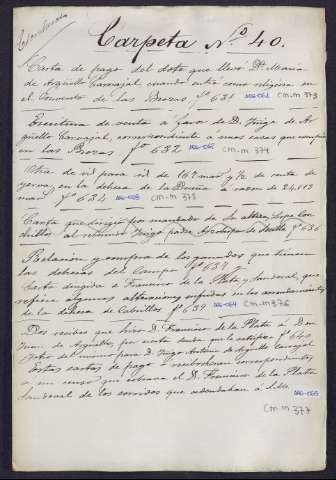 Carpeta N.º 40.
Carta de pago del dote que llevó D.ª María
de Argüello Carvajal cuando entró como religiosa en
el Convento de las Brozas fº 631 cm.m 373
Escritura de venta á favor de D. Íñigo de Ar
güello Carvajal, correspondiente á unas casas que compró
en las Brozas fº 632 cm.m 374
Otra de id para id de 167 mar.s y ½ de renta de
yerva, en la dehesa de la a razon de 24.113
mar.s fº 634 cm.m 375
Carta que dirigió por mandado de Su alteza, Lope Con
chillos al Íñigo padre Arzobispo de Sevilla fº 636
Relacion y compra de los ganados que tienen
las dehesas del Campo fº 637
Carta dirigida a Francisco de la Plata y Sandoval, que
refiere algunas alteraciones sufridas en los arrendamientos
de la dehesa de Cabrillos fº 639 cm.m 376
Dos recibos que hizo D. Francisco de la Plata a Don
Juan de Argüello, por renta fº 640
Otro del mismo para D. Íñigo Antonio de Argüello Carvajal
Estas cartas de pago ó recibos eran correspondientes
a un censo que cobrava el D. Francisco de la Plata
Sandoval de los corridos que adeudaban á
cm.m 377